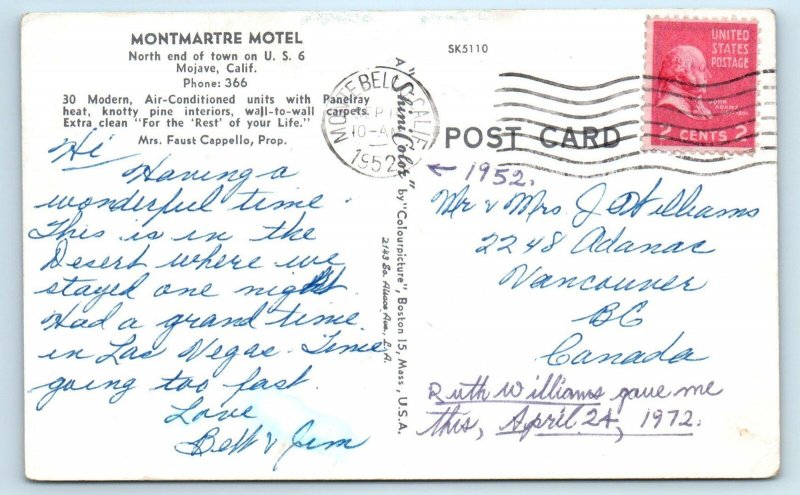 MONTMARTRE MOTEL
North end of town on U. S. 6
Mojave, Calif.
Phone: 366
30 Modern, Air-Conditioned units with Panelray
heat, knotty pine interiors, wall-to-wall carpets.
Extra clean "For the 'Rest' of your Life."
Mrs. Faust Cappello, Prop.
Hi
Having a
wonderful time.
This is in the
Desert where we
stayed one night
Had a grand time
in Las Vegas. Time
going too fast.
Love
Bett & Jim
A "Shini-Color" by "Colourpicture", Boston 15, Mass., U.S.A.
SK5110
MONTEBELLO CALIF
10-AM
1952
POST CARD
UNITED
STATES
POSTAGE
JOHN
ADAMS
2 CENTS 2
← 1952.
Mr & Mrs J Williams
2248 Adanac
Vancouver
BC
Canada
Ruth Williams gave me
this, April 24, 1972.